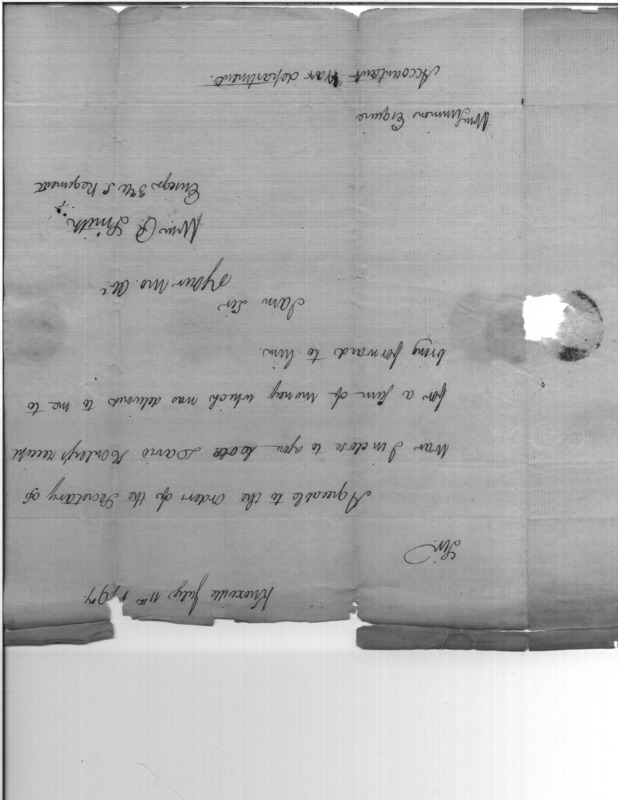 Knoxville July 11th 1797.
Sir.
Agreable to the orders of the Secretary of
War I inclose to you David Henley's receipt
for a sum of money which was delivered to me to
bring forward to him.
I am Sir
yours Mo. Ob.t
Wm. R. Smith
Ensign 3 U S Regiment
Wm Simmons Esquire
Accountant War department.